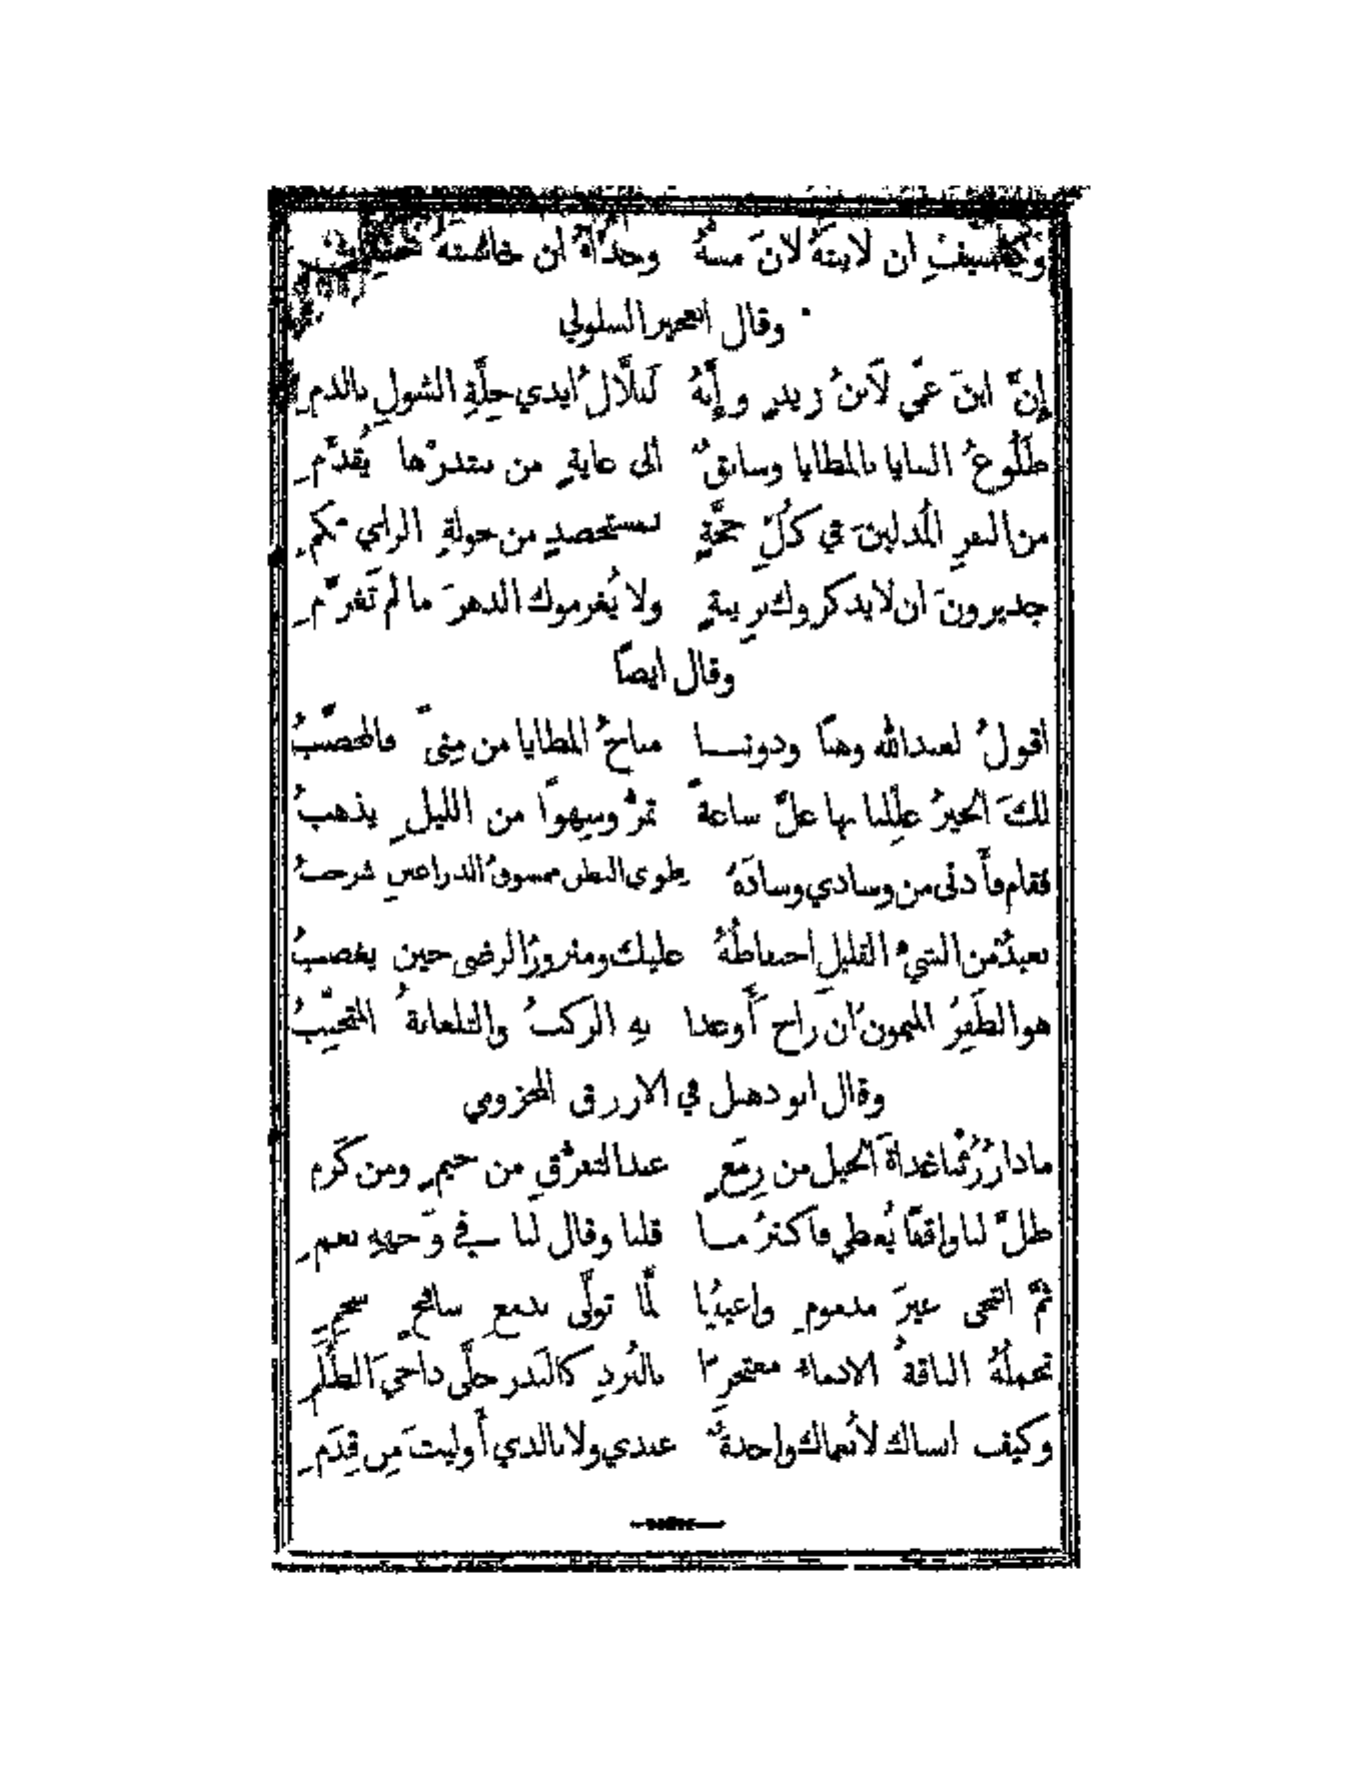 وكالسيفِ ان لاينتهُ لانَ مسهُ وحدَّاهُ ان خاشنتهُ خشنانِ
وقال العجير السلولي
إِنَّ ابنَ عمّي لَابنُ زيدٍ وإِنَّهُ لبلَّالُ ايدي جِلَّةِ الشولِ بالدمِ
طَلُوعُ الثنايا بالمطايا وسابقٌ الى غايةٍ من يبتدرْها يُقدَّمِ
من النفرِ المُدلينَ في كُلِّ حجَّةٍ بمستحصدٍ من جولةِ الراي محكمِ
جديرونَ ان لا يذكروك بريبةٍ ولا يُغرموك الدهرَ ما لم تَغرَّمِ
وقال ايضًا
اقولُ لعبدالله وهنًا ودوننــا مناخُ المطايا من مِنىً فالمحصّبُ
لكَ الخيرُ علِّلنا بها علَّ ساعةً تمرُّ وسِهوًا من الليلِ يذهبُ
فقام فأَدنى من وسادي وسادَهُ طوي البطن ممشوقُ الذراعين شرحبُ
بعيدٌ من الشيءِ القليلِ احتفاظُهُ عليك ومنزورُ الرضى حين يغضبُ
هو الظَفِرُ الميمونُ ان راح أَو غدا بهِ الركبُ والتلعابةُ المتحبِّبُ
وقال ابو دهبل في الازرق المخزومي
ماذا رُزئنا غداةَ الخيل من رِمَعٍ عند التفرُّقِ من خيمٍ ومن كَرَم
ظلَّ لنا واقفًا يُعطي فاكثرُ مـا قلنا وقال لنا ـفي وَجههِ نعمِ
ثمَّ انتحى غيرَ مذمومٍ واعينُنا لمَّا تولَّى بدمعٍ سافحٍ سجمِ
تحملُهُ الناقةُ الادماءُ معتجرًا بالبُردِ كالبَدر جلَّى داجيَ الظُلَمِ
وكيف انساك لا نُعماك واحدةٌ عندي ولا بالذي أَوليتَ مِن قِدَمِ